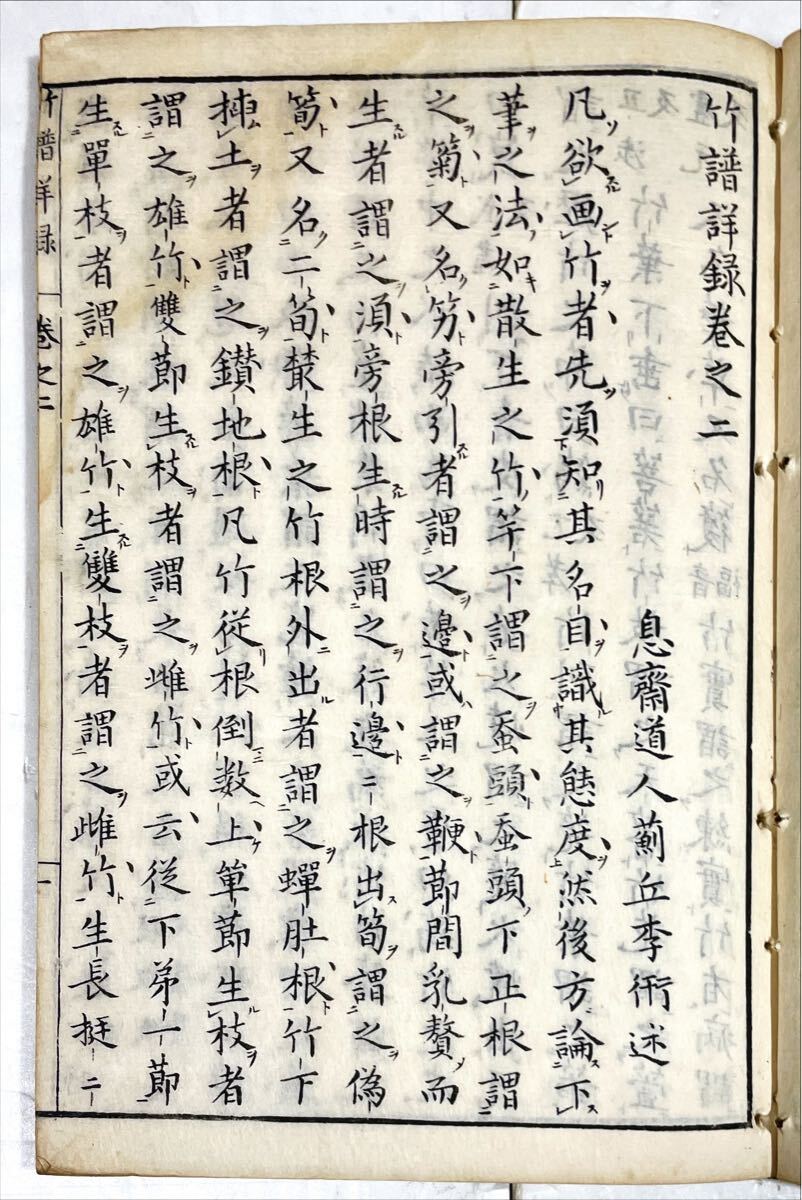 竹譜詳録卷之二
息齋道人薊丘李衎述
凡欲画竹者先須知其名目識其態度然後方論下
筆之法如散生之竹竿下謂之蚕頭蚕頭下正根謂
之菊又名笏旁引者謂之邊或謂之鞭節間乳贅而
生者謂之須旁根生時謂之行邊ニ根出筍謂之偽
筍又名二筍叢生之竹根外出者謂之蟬肚根竹下
揀土者謂之鑚地根凡竹從根倒数上単節生枝者
謂之雄竹雙節生枝者謂之雌竹或云從下第一節
生單枝者謂之雄竹生雙枝者謂之雌竹生長挺ニ
竹譜詳録 卷之二 一